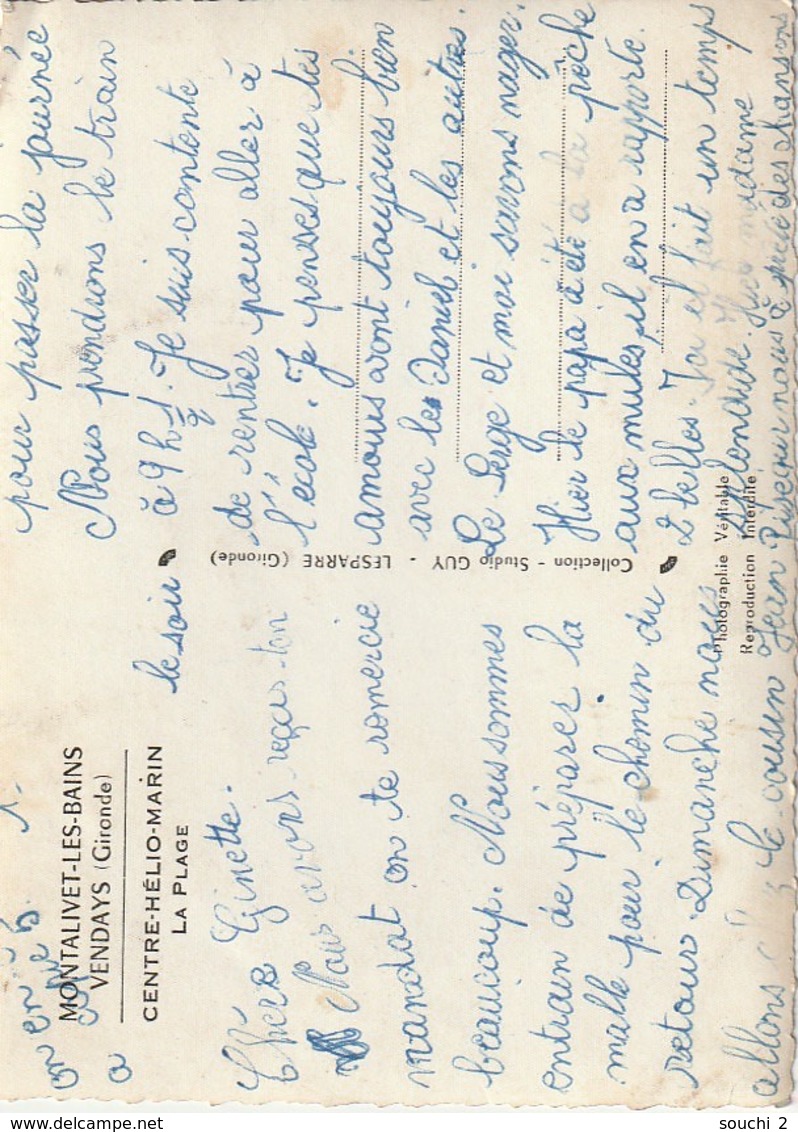 MONTALIVET-LES-BAINS
VENDAYS (Gironde)
CENTRE-HÉLIO-MARIN
LA PLAGE
le soir
Chère Ginette.
Nous avons reçus ton
mandat on te remercie
beaucoup. Nous sommes
entrain de préparer la
malle pour le chemin du
retour. Dimanche nous
allons
le cousin Jean
pour passer la journée
Nous prendrons le train
à 9 h 1/2. Je suis contente
de rentrer pour aller à
l'école. Je penses que tes
amours vont toujours bien
avec le Daniel et les autres.
Le Serge et moi savons nager.
Hier le papa à été à la pêche
aux mules, il en a rapporté
2 belles. Ici il fait un temps
splendide. Hier madame
nous à des chansons
on en à
a
Collection - Studio GUY - LESPARRE (Gironde)
Photographie Véritable
Reproduction Interdite
souchi 2